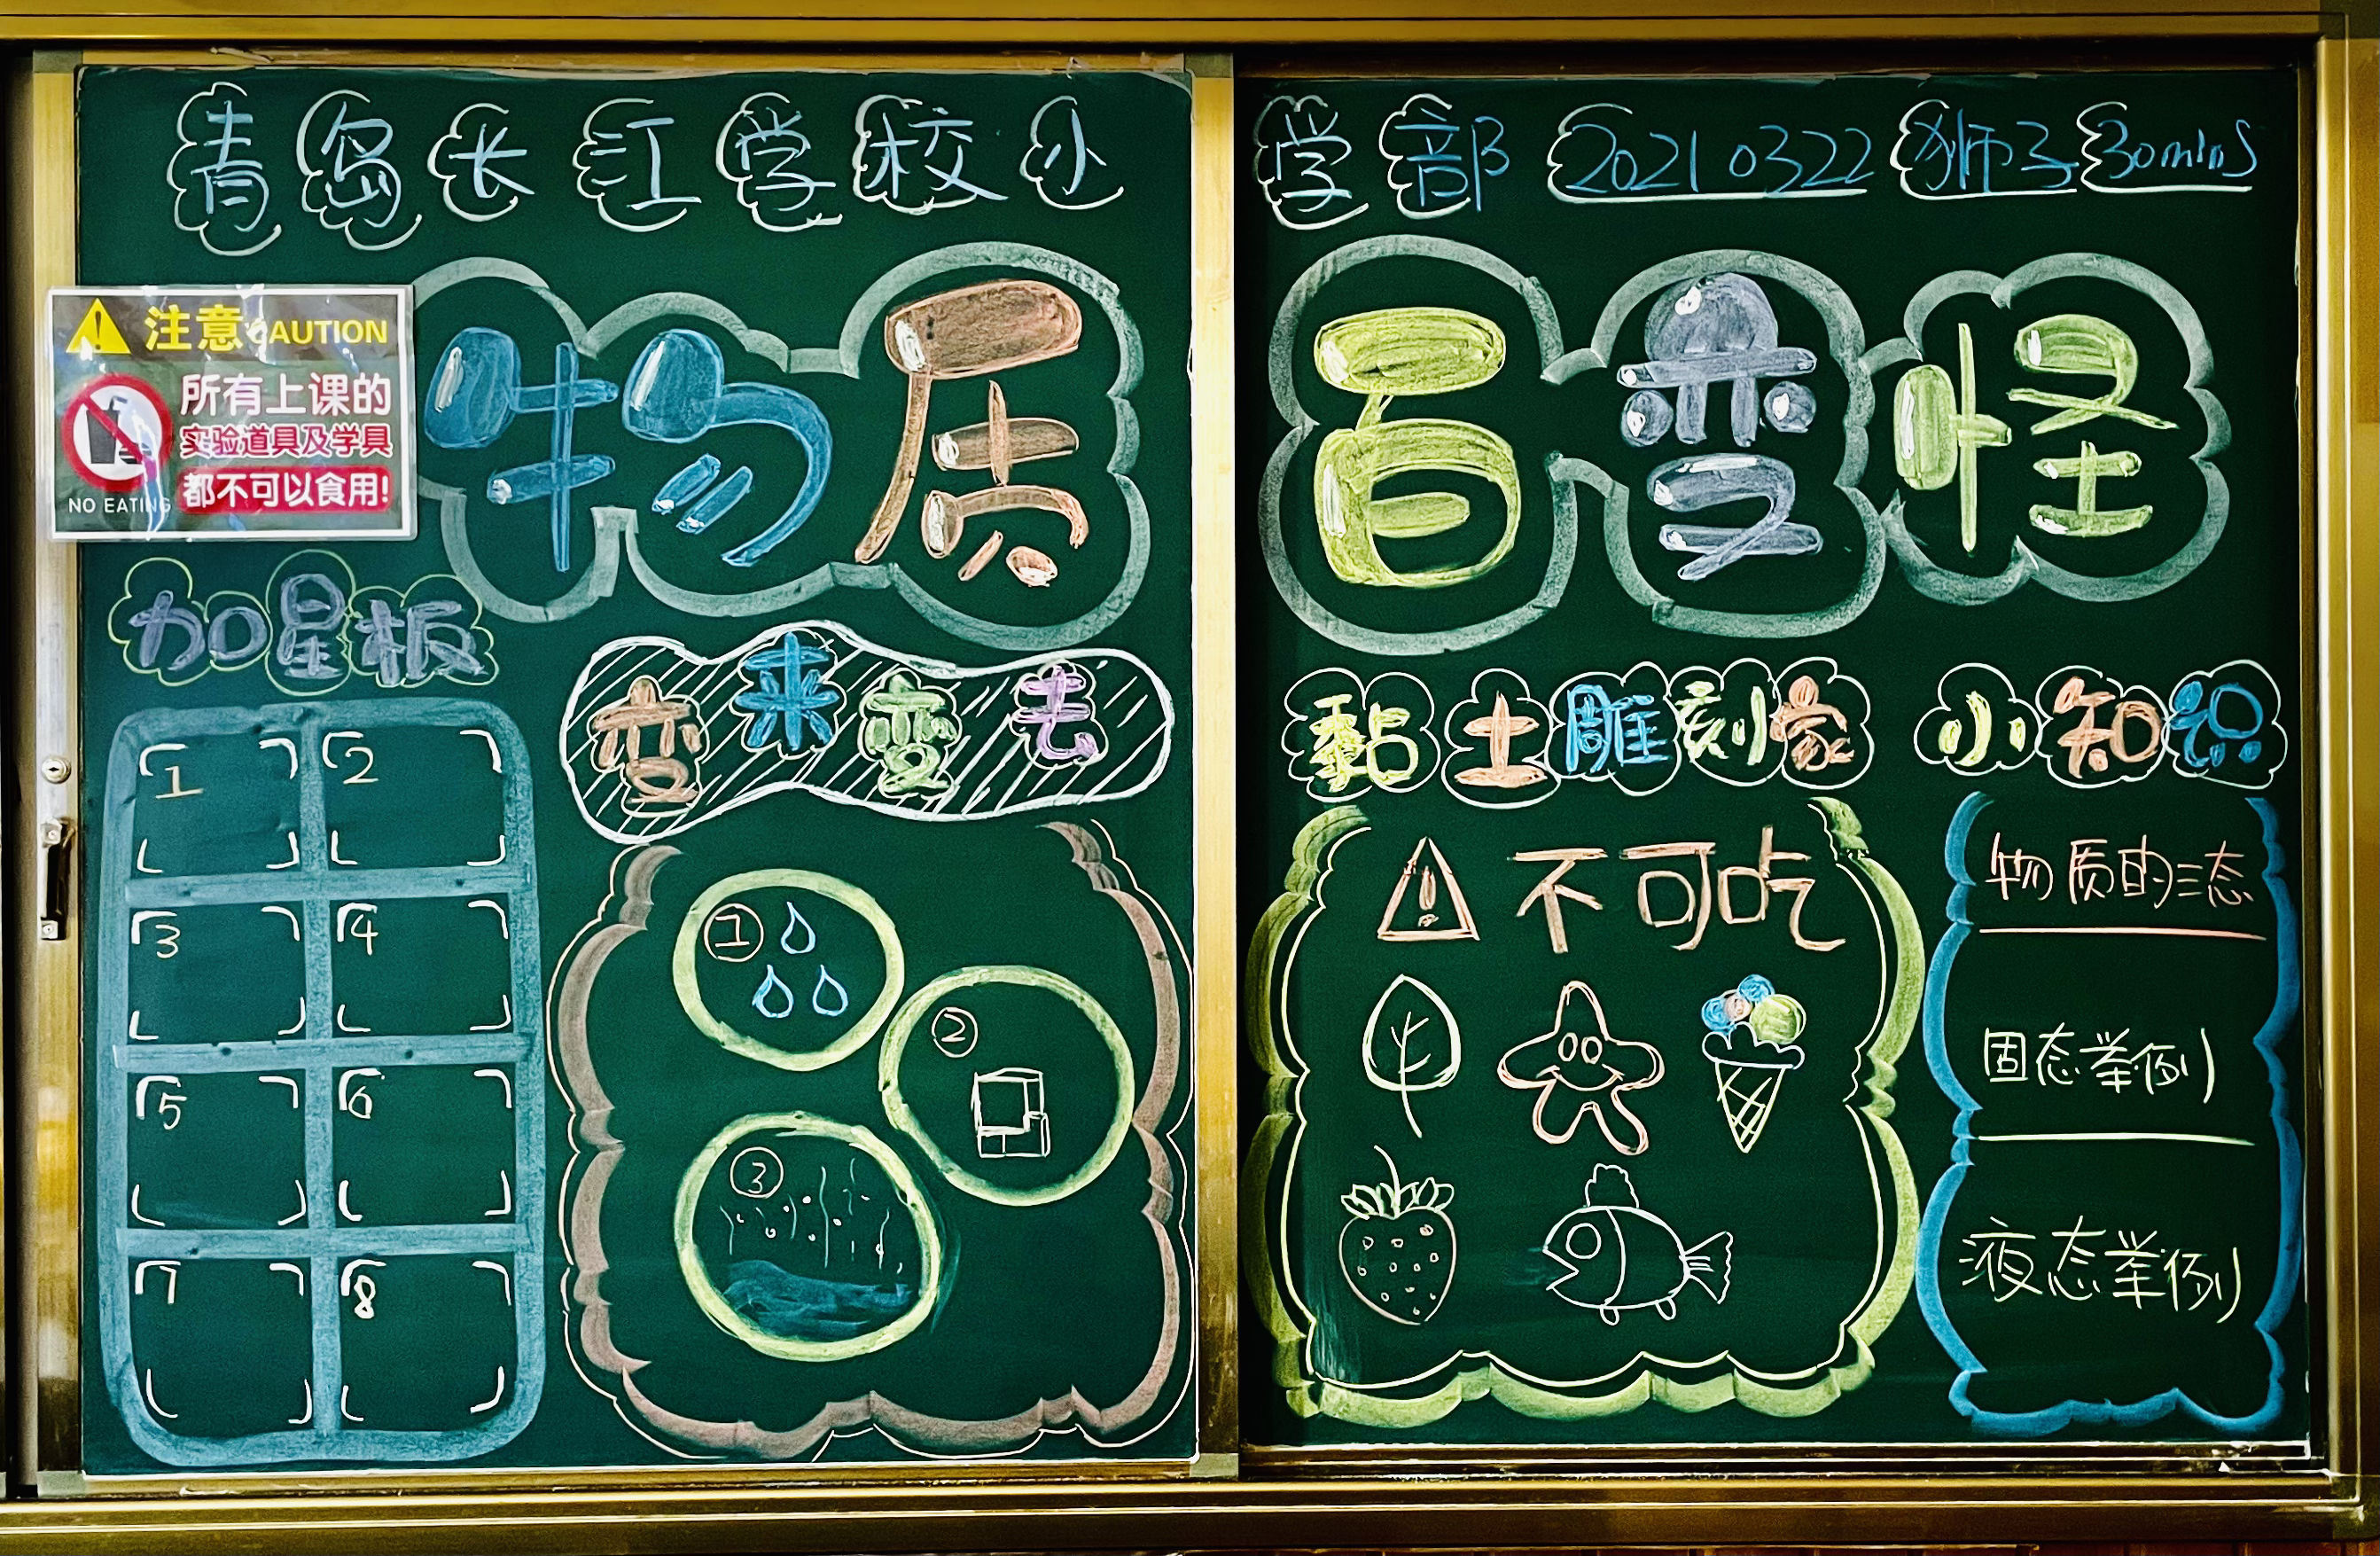 青岛长江学校小学部 20210322 狮子 30mins
物质百变怪
注意 CAUTION
所有上课的
实验道具及学具
都不可以食用!
NO EATING
加星板
1 2
3 4
5 6
7 8
变来变去
①
②
③
黏土雕刻家
! 不可吃
小知识
物质的三态
固态举例
液态举例